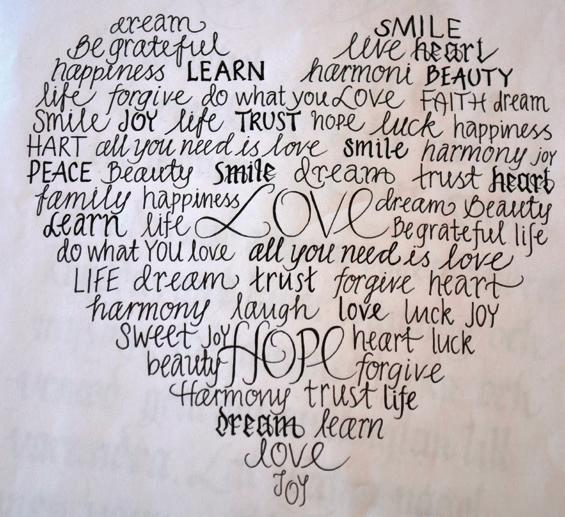 dream SMILE
Be grateful live heart
happiness LEARN harmoni BEAUTY
life forgive do what you LOVE FAITH dream
Smile JOY life TRUST hope luck happiness
HART all you need is love smile harmony joy
PEACE Beauty Smile dream trust heart
family happiness LOVE dream Beauty
Learn life Be grateful life
do what YOU love all you need is love
LIFE dream trust forgive heart
harmony laugh love luck JOY
Sweet JOY HOPE heart luck
beauty forgive
Harmony trust life
dream learn
love
JOY